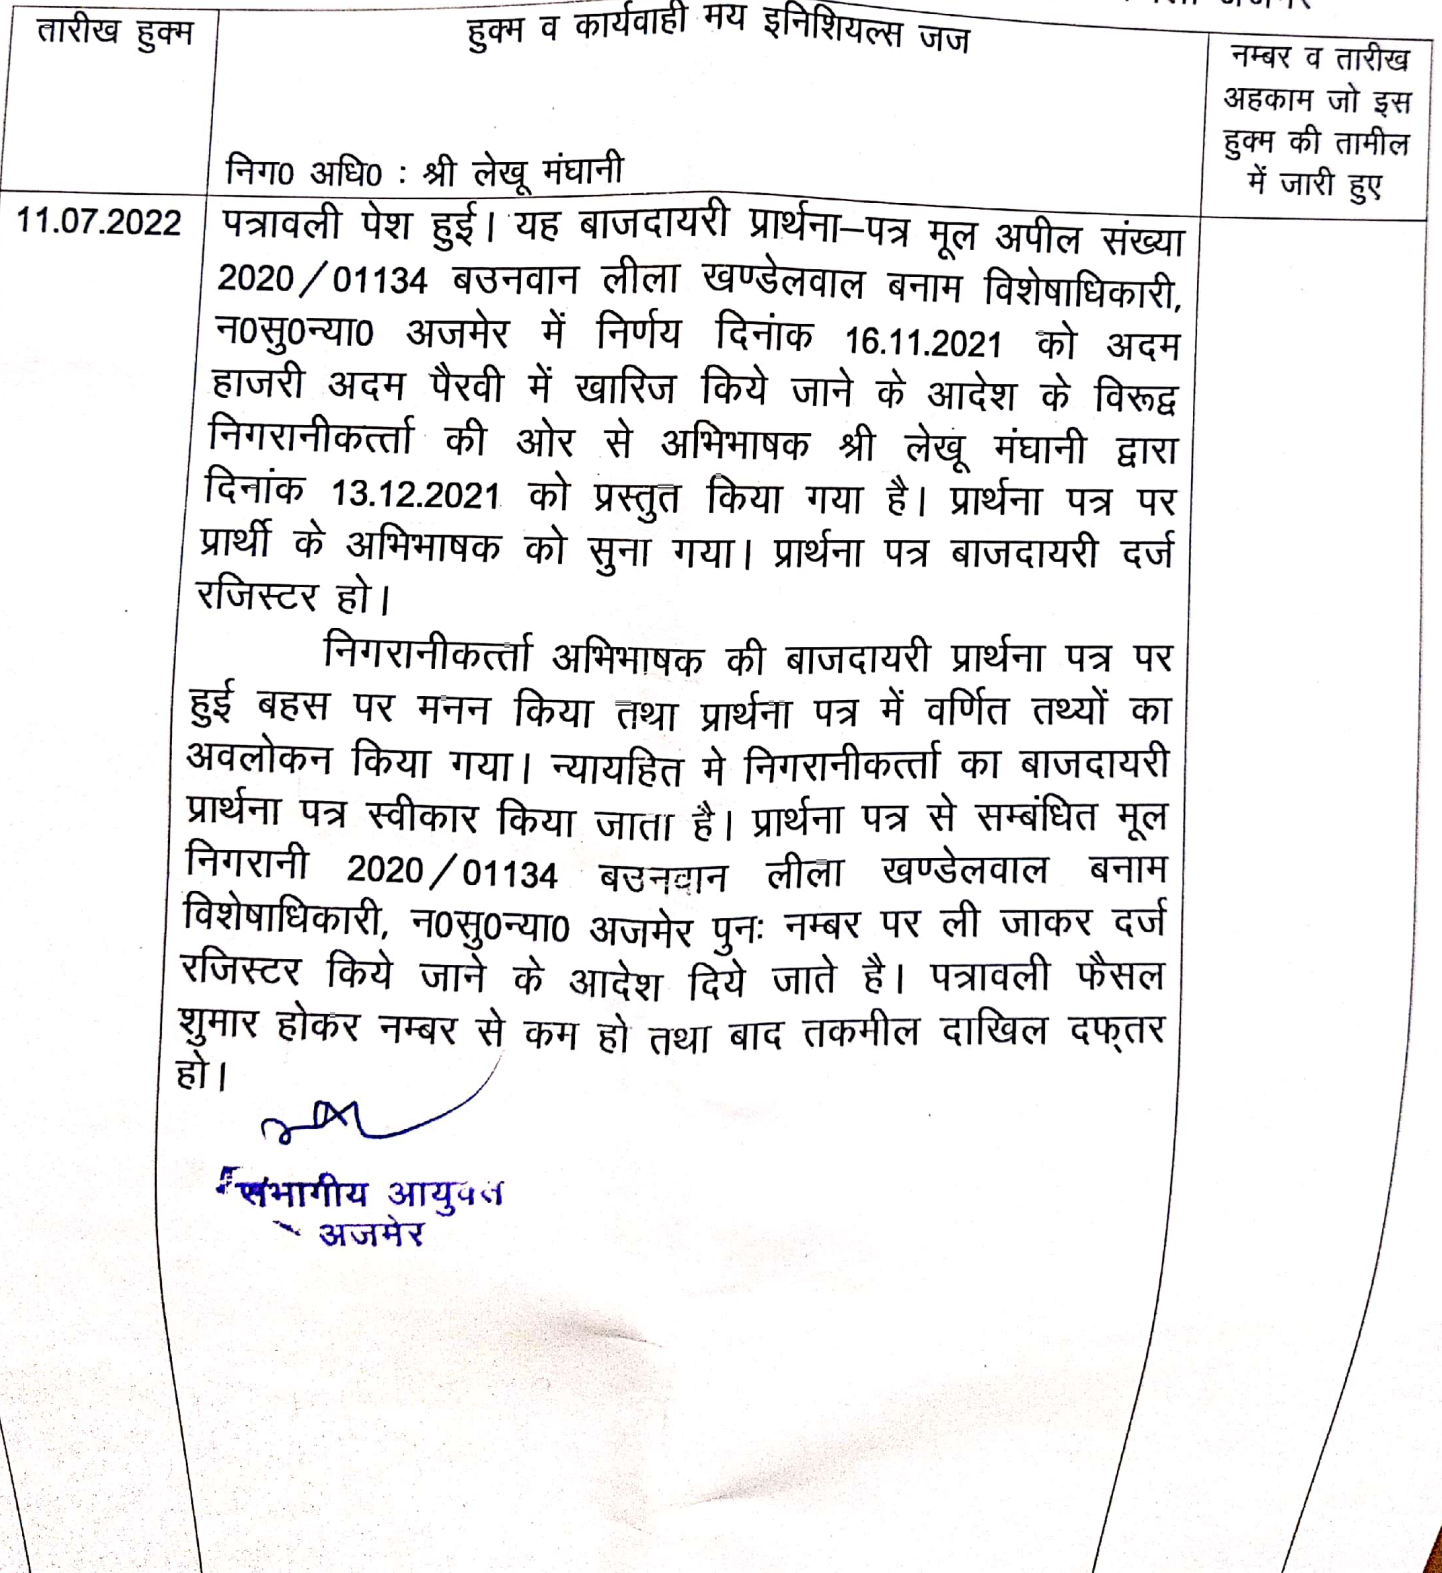 तारीख हुक्म
हुक्म व कार्यवाही मय इनिशियल्स जज
नम्बर व तारीख
अहकाम जो इस
हुक्म की तामील
में जारी हुए
निग0 अधि0 : श्री लेखू मंघानी
11.07.2022
पत्रावली पेश हुई। यह बाजदायरी प्रार्थना–पत्र मूल अपील संख्या
2020/01134 बउनवान लीला खण्डेलवाल बनाम विशेषाधिकारी,
न0सु0न्या0 अजमेर में निर्णय दिनांक 16.11.2021 को अदम
हाजरी अदम पैरवी में खारिज किये जाने के आदेश के विरूद्व
निगरानीकर्त्ता की ओर से अभिभाषक श्री लेखू मंघानी द्वारा
दिनांक 13.12.2021 को प्रस्तुत किया गया है। प्रार्थना पत्र पर
प्रार्थी के अभिभाषक को सुना गया। प्रार्थना पत्र बाजदायरी दर्ज
रजिस्टर हो।
निगरानीकर्त्ता अभिभाषक की बाजदायरी प्रार्थना पत्र पर
हुई बहस पर मनन किया तथा प्रार्थना पत्र में वर्णित तथ्यों का
अवलोकन किया गया। न्यायहित मे निगरानीकर्त्ता का बाजदायरी
प्रार्थना पत्र स्वीकार किया जाता है। प्रार्थना पत्र से सम्बंधित मूल
निगरानी 2020/01134 बउनवान लीला खण्डेलवाल बनाम
विशेषाधिकारी, न0सु0न्या0 अजमेर पुनः नम्बर पर ली जाकर दर्ज
रजिस्टर किये जाने के आदेश दिये जाते है। पत्रावली फैसल
शुमार होकर नम्बर से कम हो तथा बाद तकमील दाखिल दफ्तर
हो।
संभागीय आयुक्त
अजमेर